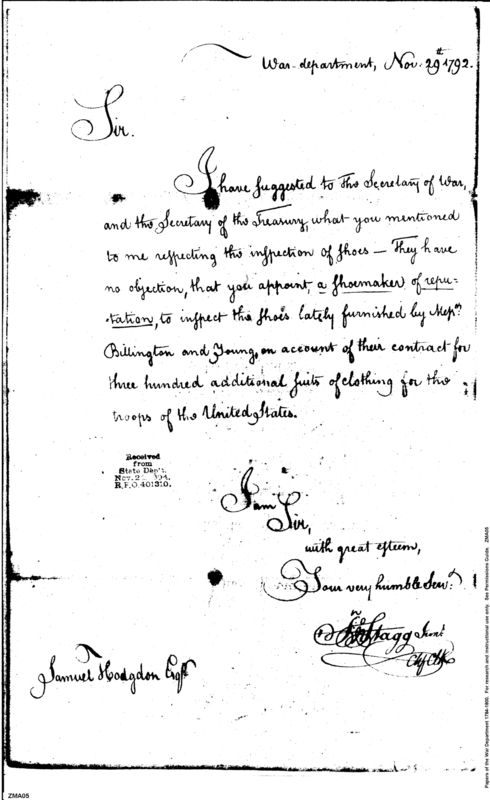 War-department, Nov. 29th 1792.
Sir.
I have suggested to the Secretary of War,
and the Secretary of the Treasury, what you mentioned
to me respecting the inspection of shoes — They have
no objection, that you appoint, a shoemaker of repu-
tation, to inspect the shoes lately furnished by Messrs
Billington and Young, on account of their contract for
three hundred additional suits of clothing for the
troops of the United States.
Received
from
State Dep't.
R.P.O. 401310.
I am
Sir,
with great esteem,
Your very humble Servt
Jno Stagg Junr
Chf Clk
Samuel Hodgdon Esqr
Papers of the War Department 1784-1800. For research and instructional use only. See Permissions Guide. ZMA05
ZMA05